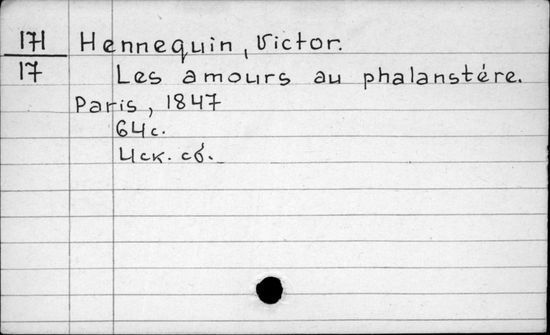 171 Hennequin, Victor.
17 Les amours au phalanstére.
Paris, 1847
64с.
Иск. сб.